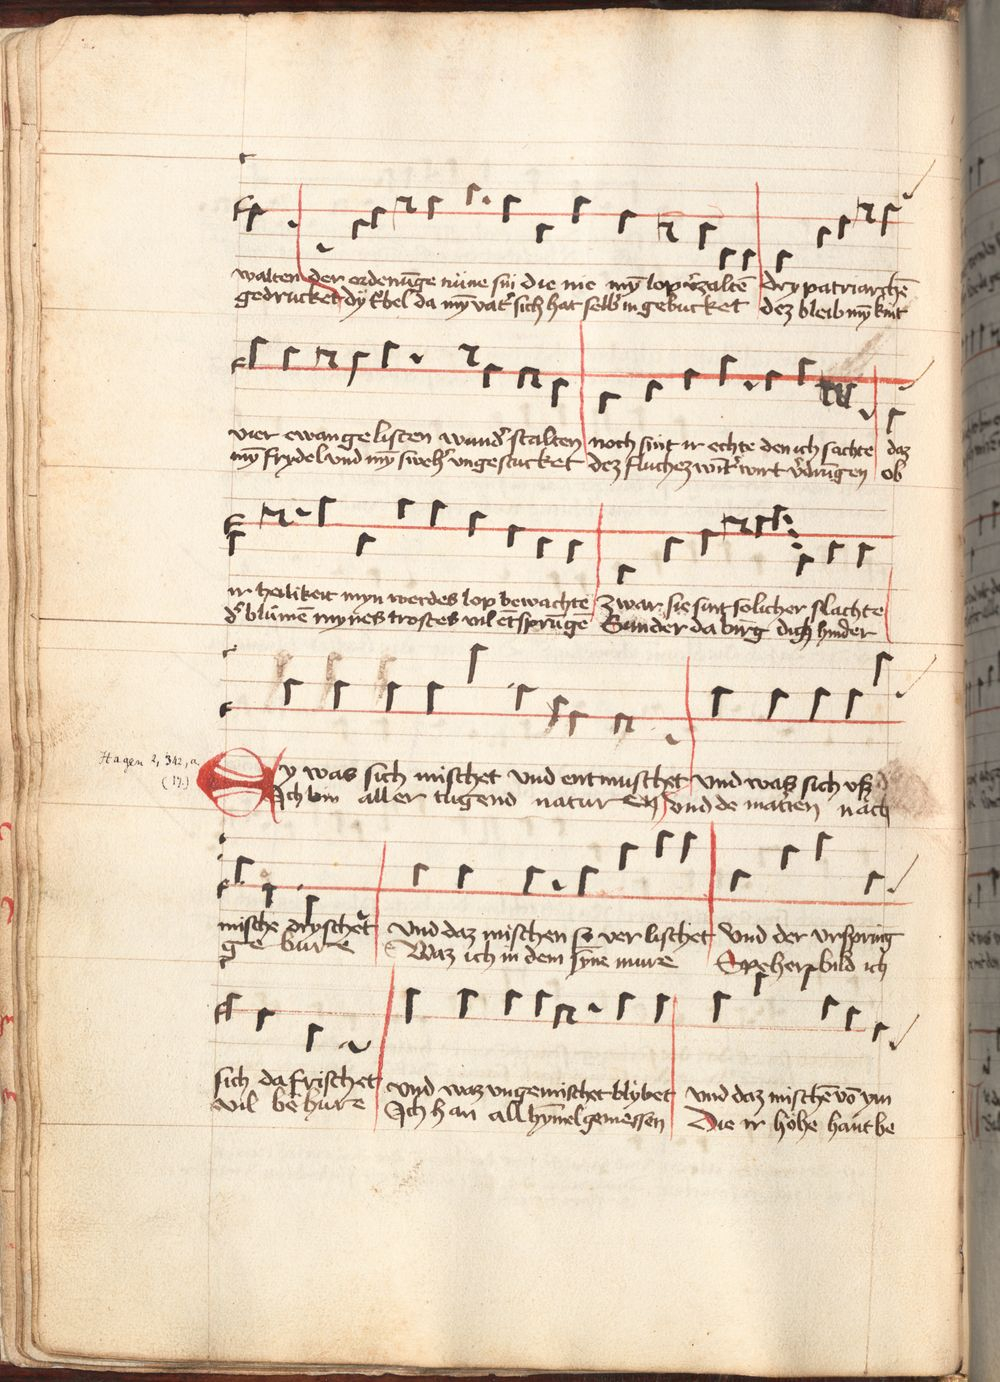 walten der ordenūge nüne sin die nie mȳ lop v̓zaltē dry patriarchē
gedrucket dÿ tv̓bel da mȳ vat̓ sich hat selb̓ in gebucket dez bleib mȳ kint
vier ewangelisten wund̓ stalten noch sint ir echte den ich sachte daz
mȳ frydel vnd mȳ sweh̓ vngestucket dez fluchez wīt̓ wirt v̓drūgen ob
ir heilikeit myn werdes lop bewachte zwar sie sint solicher slachte
d̓ blůmē mynes trostes vil ētsprūge Sunder da birg dich hinder
Hagen 2, 342, a
(17.)
Sy was sich mischet vnd entmuschet vnd wasz sich vsz
Ich bin aller tugend natur eỹ vnd de mat̓ien nach
mische dryschet̓ vnd daz mischen so ver lischet vnd der vrsprūg
ge bure Waz ich in dem syne mure Speherpbild ich
sich da frischet vnd waz vngemischet blybet vnd daz mischē vō ym
vil be hure Ich han all hȳmel gemessen Die ir hohe hant be